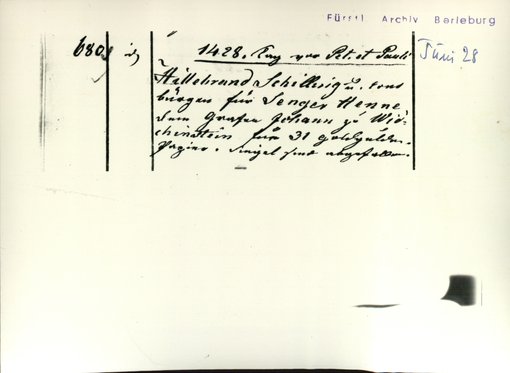 Fürstl. Archiv Berleburg
680. id 1428. Tag vor Pet. et Pauli Juni 28
Hillebrand Schilling u. cons
bürgen für Senger Henne
dem Grafen Johann zu Wit-
chenstein für 31 goldgulden.
Papier. Siegel sind abgefallen.